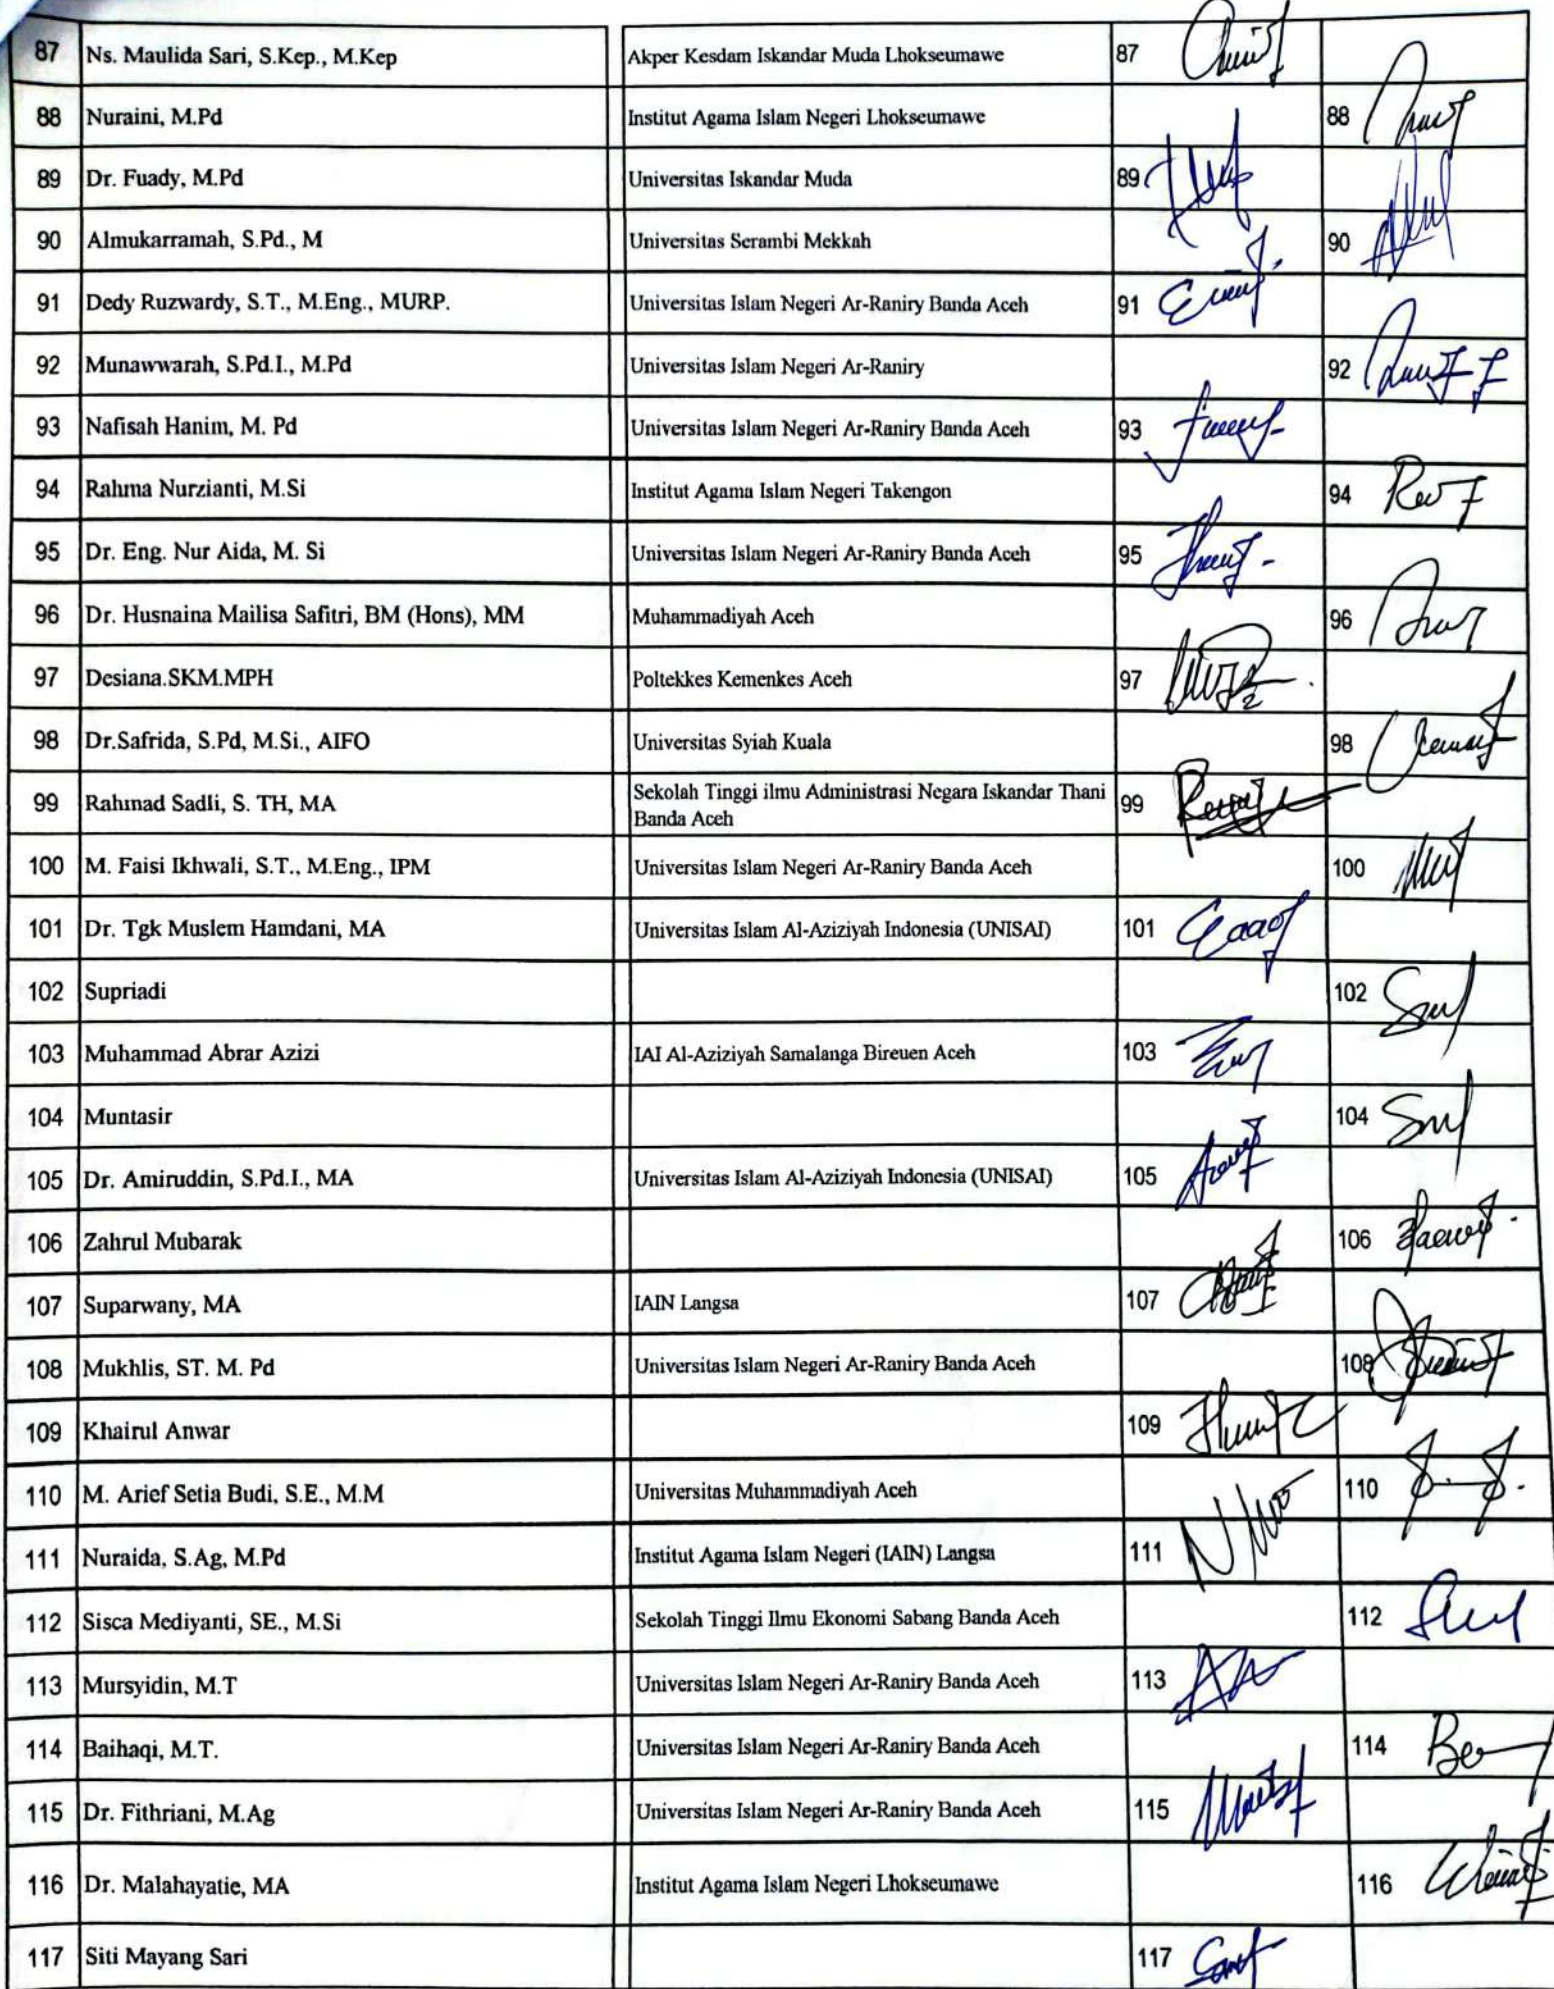 87 Ns. Maulida Sari, S.Kep., M.Kep Akper Kesdam Iskandar Muda Lhokseumawe 87
88 Nuraini, M.Pd Institut Agama Islam Negeri Lhokseumawe 88
89 Dr. Fuady, M.Pd Universitas Iskandar Muda 89
90 Almukarramah, S.Pd., M Universitas Serambi Mekkah 90
91 Dedy Ruzwardy, S.T., M.Eng., MURP. Universitas Islam Negeri Ar-Raniry Banda Aceh 91
92 Munawwarah, S.Pd.I., M.Pd Universitas Islam Negeri Ar-Raniry 92
93 Nafisah Hanim, M. Pd Universitas Islam Negeri Ar-Raniry Banda Aceh 93
94 Rahma Nurzianti, M.Si Institut Agama Islam Negeri Takengon 94
95 Dr. Eng. Nur Aida, M. Si Universitas Islam Negeri Ar-Raniry Banda Aceh 95
96 Dr. Husnaina Mailisa Safitri, BM (Hons), MM Muhammadiyah Aceh 96
97 Desiana.SKM.MPH Poltekkes Kemenkes Aceh 97
98 Dr.Safrida, S.Pd, M.Si., AIFO Universitas Syiah Kuala 98
99 Rahmad Sadli, S. TH, MA Sekolah Tinggi ilmu Administrasi Negara Iskandar Thani 99
Banda Aceh
100 M. Faisi Ikhwali, S.T., M.Eng., IPM Universitas Islam Negeri Ar-Raniry Banda Aceh 100
101 Dr. Tgk Muslem Hamdani, MA Universitas Islam Al-Aziziyah Indonesia (UNISAI) 101
102 Supriadi 102
103 Muhammad Abrar Azizi IAI Al-Aziziyah Samalanga Bireuen Aceh 103
104 Muntasir 104
105 Dr. Amiruddin, S.Pd.I., MA Universitas Islam Al-Aziziyah Indonesia (UNISAI) 105
106 Zahrul Mubarak 106
107 Suparwany, MA IAIN Langsa 107
108 Mukhlis, ST. M. Pd Universitas Islam Negeri Ar-Raniry Banda Aceh 108
109 Khairul Anwar 109
110 M. Arief Setia Budi, S.E., M.M Universitas Muhammadiyah Aceh 110
111 Nuraida, S.Ag, M.Pd Institut Agama Islam Negeri (IAIN) Langsa 111
112 Sisca Mediyanti, SE., M.Si Sekolah Tinggi Ilmu Ekonomi Sabang Banda Aceh 112
113 Mursyidin, M.T Universitas Islam Negeri Ar-Raniry Banda Aceh 113
114 Baihaqi, M.T. Universitas Islam Negeri Ar-Raniry Banda Aceh 114
115 Dr. Fithriani, M.Ag Universitas Islam Negeri Ar-Raniry Banda Aceh 115
116 Dr. Malahayatie, MA Institut Agama Islam Negeri Lhokseumawe 116
117 Siti Mayang Sari 117